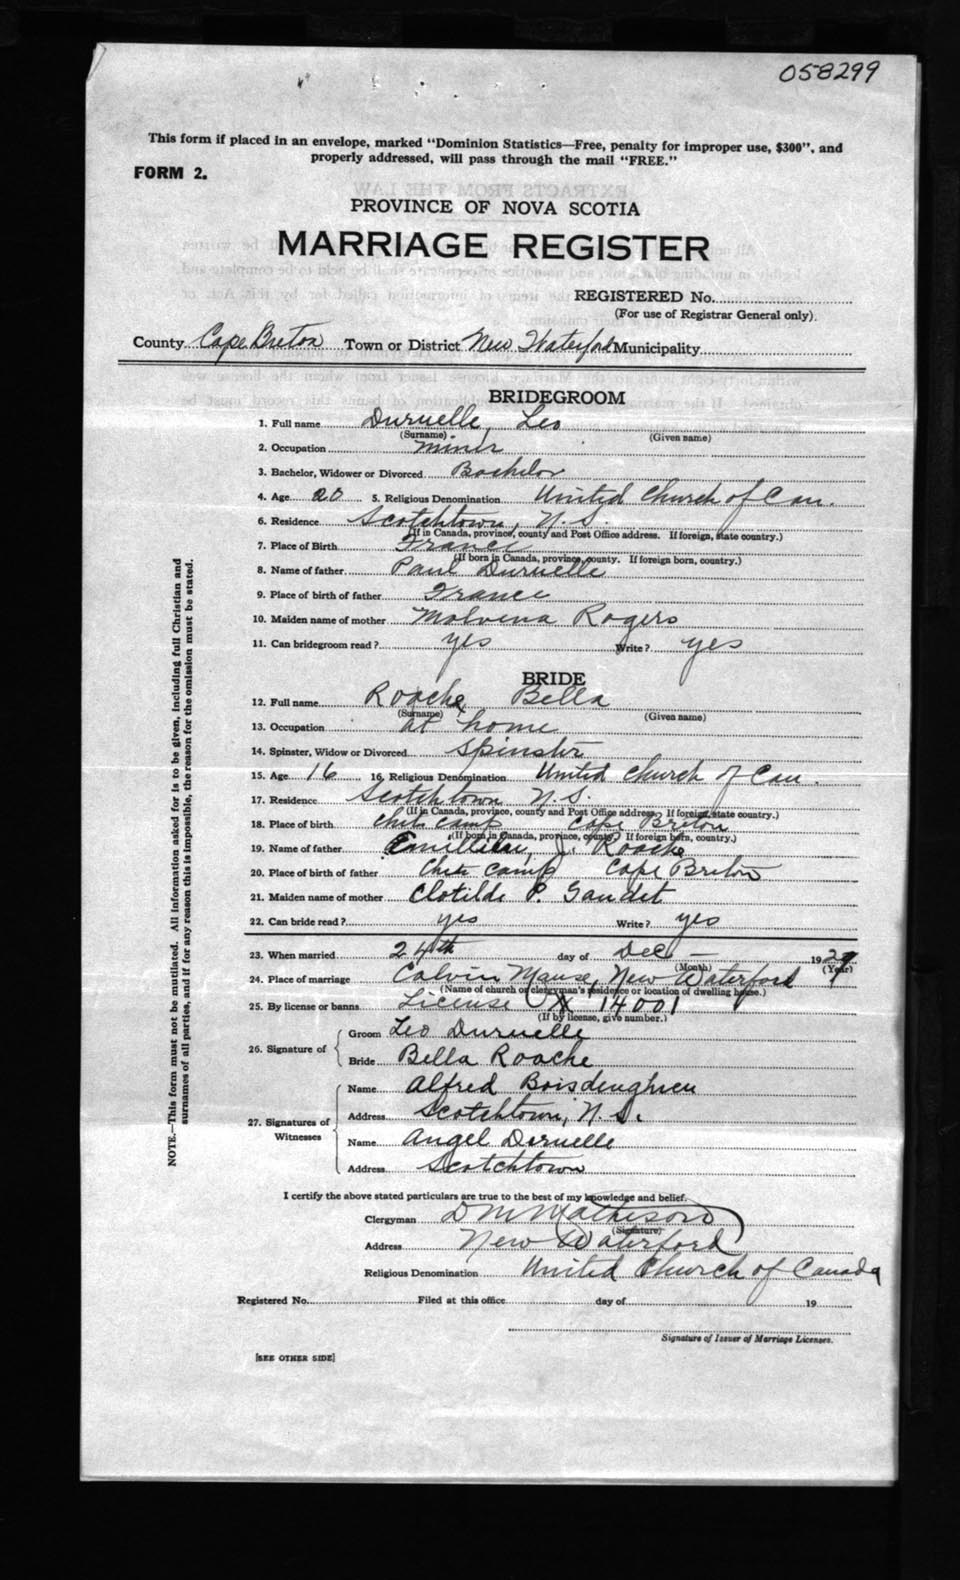 058299
This form if placed in an envelope, marked "Dominion Statistics—Free, penalty for improper use, $300", and
properly addressed, will pass through the mail "FREE."
FORM 2.
PROVINCE OF NOVA SCOTIA
MARRIAGE REGISTER
REGISTERED No.
(For use of Registrar General only).
County Cape Breton Town or District New Waterford Municipality
BRIDEGROOM
1. Full name Duruelle, Leo
(Surname) (Given name)
2. Occupation miner
3. Bachelor, Widower or Divorced Bachelor
4. Age 20 5. Religious Denomination United Church of Can.
6. Residence Scotchtown, N.S.
(If in Canada, province, county and Post Office address. If foreign, state country.)
7. Place of Birth France
(If born in Canada, province, county. If foreign born, country.)
8. Name of father Paul Duruelle
9. Place of birth of father France
10. Maiden name of mother Malvena Rogers
11. Can bridegroom read? yes Write? yes
BRIDE
12. Full name Roache, Bella
(Surname) (Given name)
13. Occupation at home
14. Spinster, Widow or Divorced Spinster
15. Age 16 16. Religious Denomination United Church of Can.
17. Residence Scotchtown N.S.
(If in Canada, province, county and Post Office address. If foreign, state country.)
18. Place of birth Chet Camp Cape Breton
(If born in Canada, province, county. If foreign born, country.)
19. Name of father J. Roache
20. Place of birth of father Chete Camp Cape Breton
21. Maiden name of mother Clotilde P. Gaudet
22. Can bride read? yes Write? yes
23. When married 24th day of Dec 1929
(Month) (Year)
24. Place of marriage Calvin Manse, New Waterford
(Name of church or clergyman's residence or location of dwelling house.)
25. By license or banns License 14001
(If by license, give number.)
26. Signature of Groom Leo Duruelle
Bride Bella Roache
27. Signatures of Witnesses Name Alfred Boisdenghien
Address Scotchtown, N.S.
Name Angel Doruelle
Address Scotchtown
I certify the above stated particulars are true to the best of my knowledge and belief.
Clergyman D M Mathieson
(Signature)
Address New Waterford
Religious Denomination United Church of Canada
Registered No. Filed at this office day of 19
Signature of Issuer of Marriage Licenses.
[SEE OTHER SIDE]
NOTE.—This form must not be mutilated. All information asked for is to be given, including full Christian and
surnames of all parties, and if for any reason this is impossible, the reason for the omission must be stated.